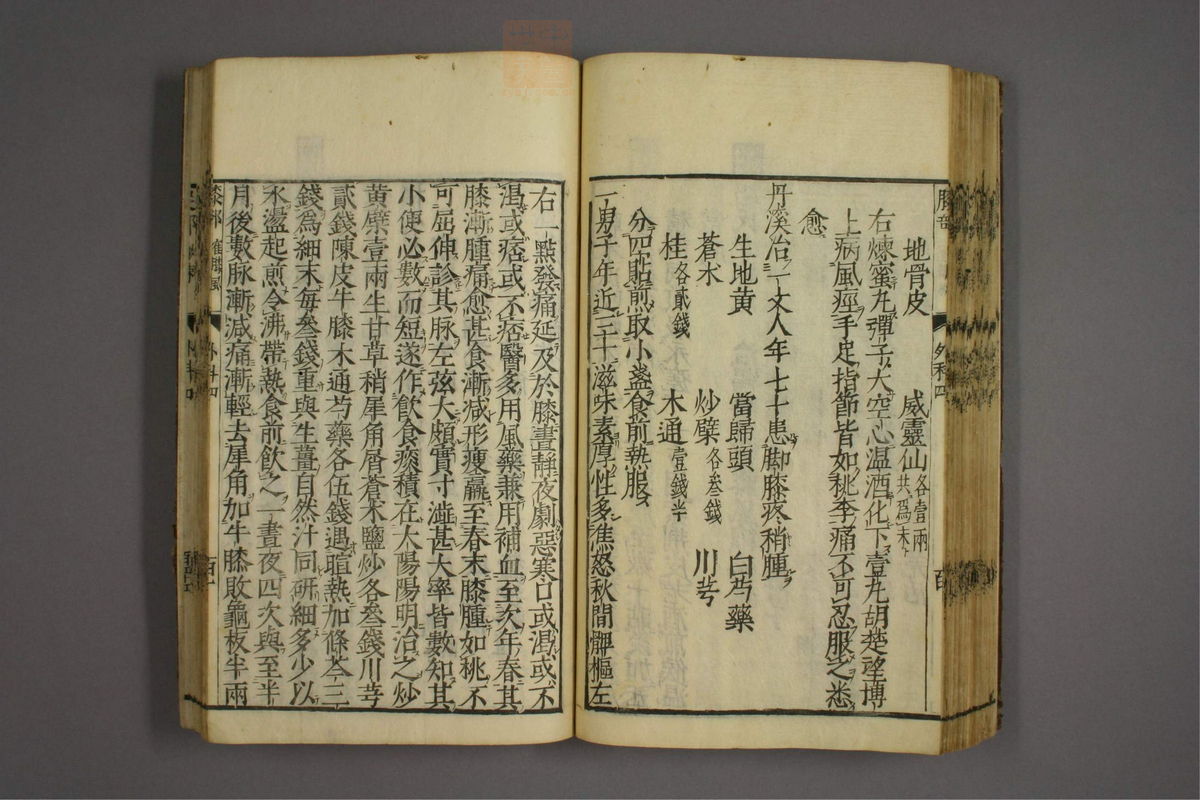 地骨皮 威靈仙各壹兩共爲末
右煉蜜丸彈子大空心温酒化下壹丸胡楚望博
上病風痙手足指節皆如桃李痛不可忍服之悉
愈
丹溪治一丈人年七十患脚膝疼稍腫
生地黄 當歸頭 白芍藥
蒼朮 炒檗各叁錢 川芎
桂各貳錢 木通壹錢半
分四貼煎取小盞食前熱服
一男子年近三十滋味素厚性多焦怒秋間髀樞左
右一點發痛延及於膝晝靜夜劇惡寒口或渇或不
渇或痞或不痞醫多用風藥兼用補血至次年春其
膝漸腫痛愈甚食漸減形瘦羸至春末膝腫如桃不
可屈伸診其脉左弦大頗實寸澁甚大率皆數知其
小便必數而短遂作飲食痰積在太陽陽明治之炒
黄檗壹兩生甘草稍犀角屑蒼朮鹽炒各叁錢川芎
貳錢陳皮牛膝木通芍藥各伍錢遇暄熱加條芩三
錢爲細末毎叁錢重與生薑自然汁同研細多少以
水盪起煎令沸帶熱食前飲之一晝夜四次與至半
月後數脉漸減痛漸輕去犀角加牛膝敗龜板半兩
膝部 外科四